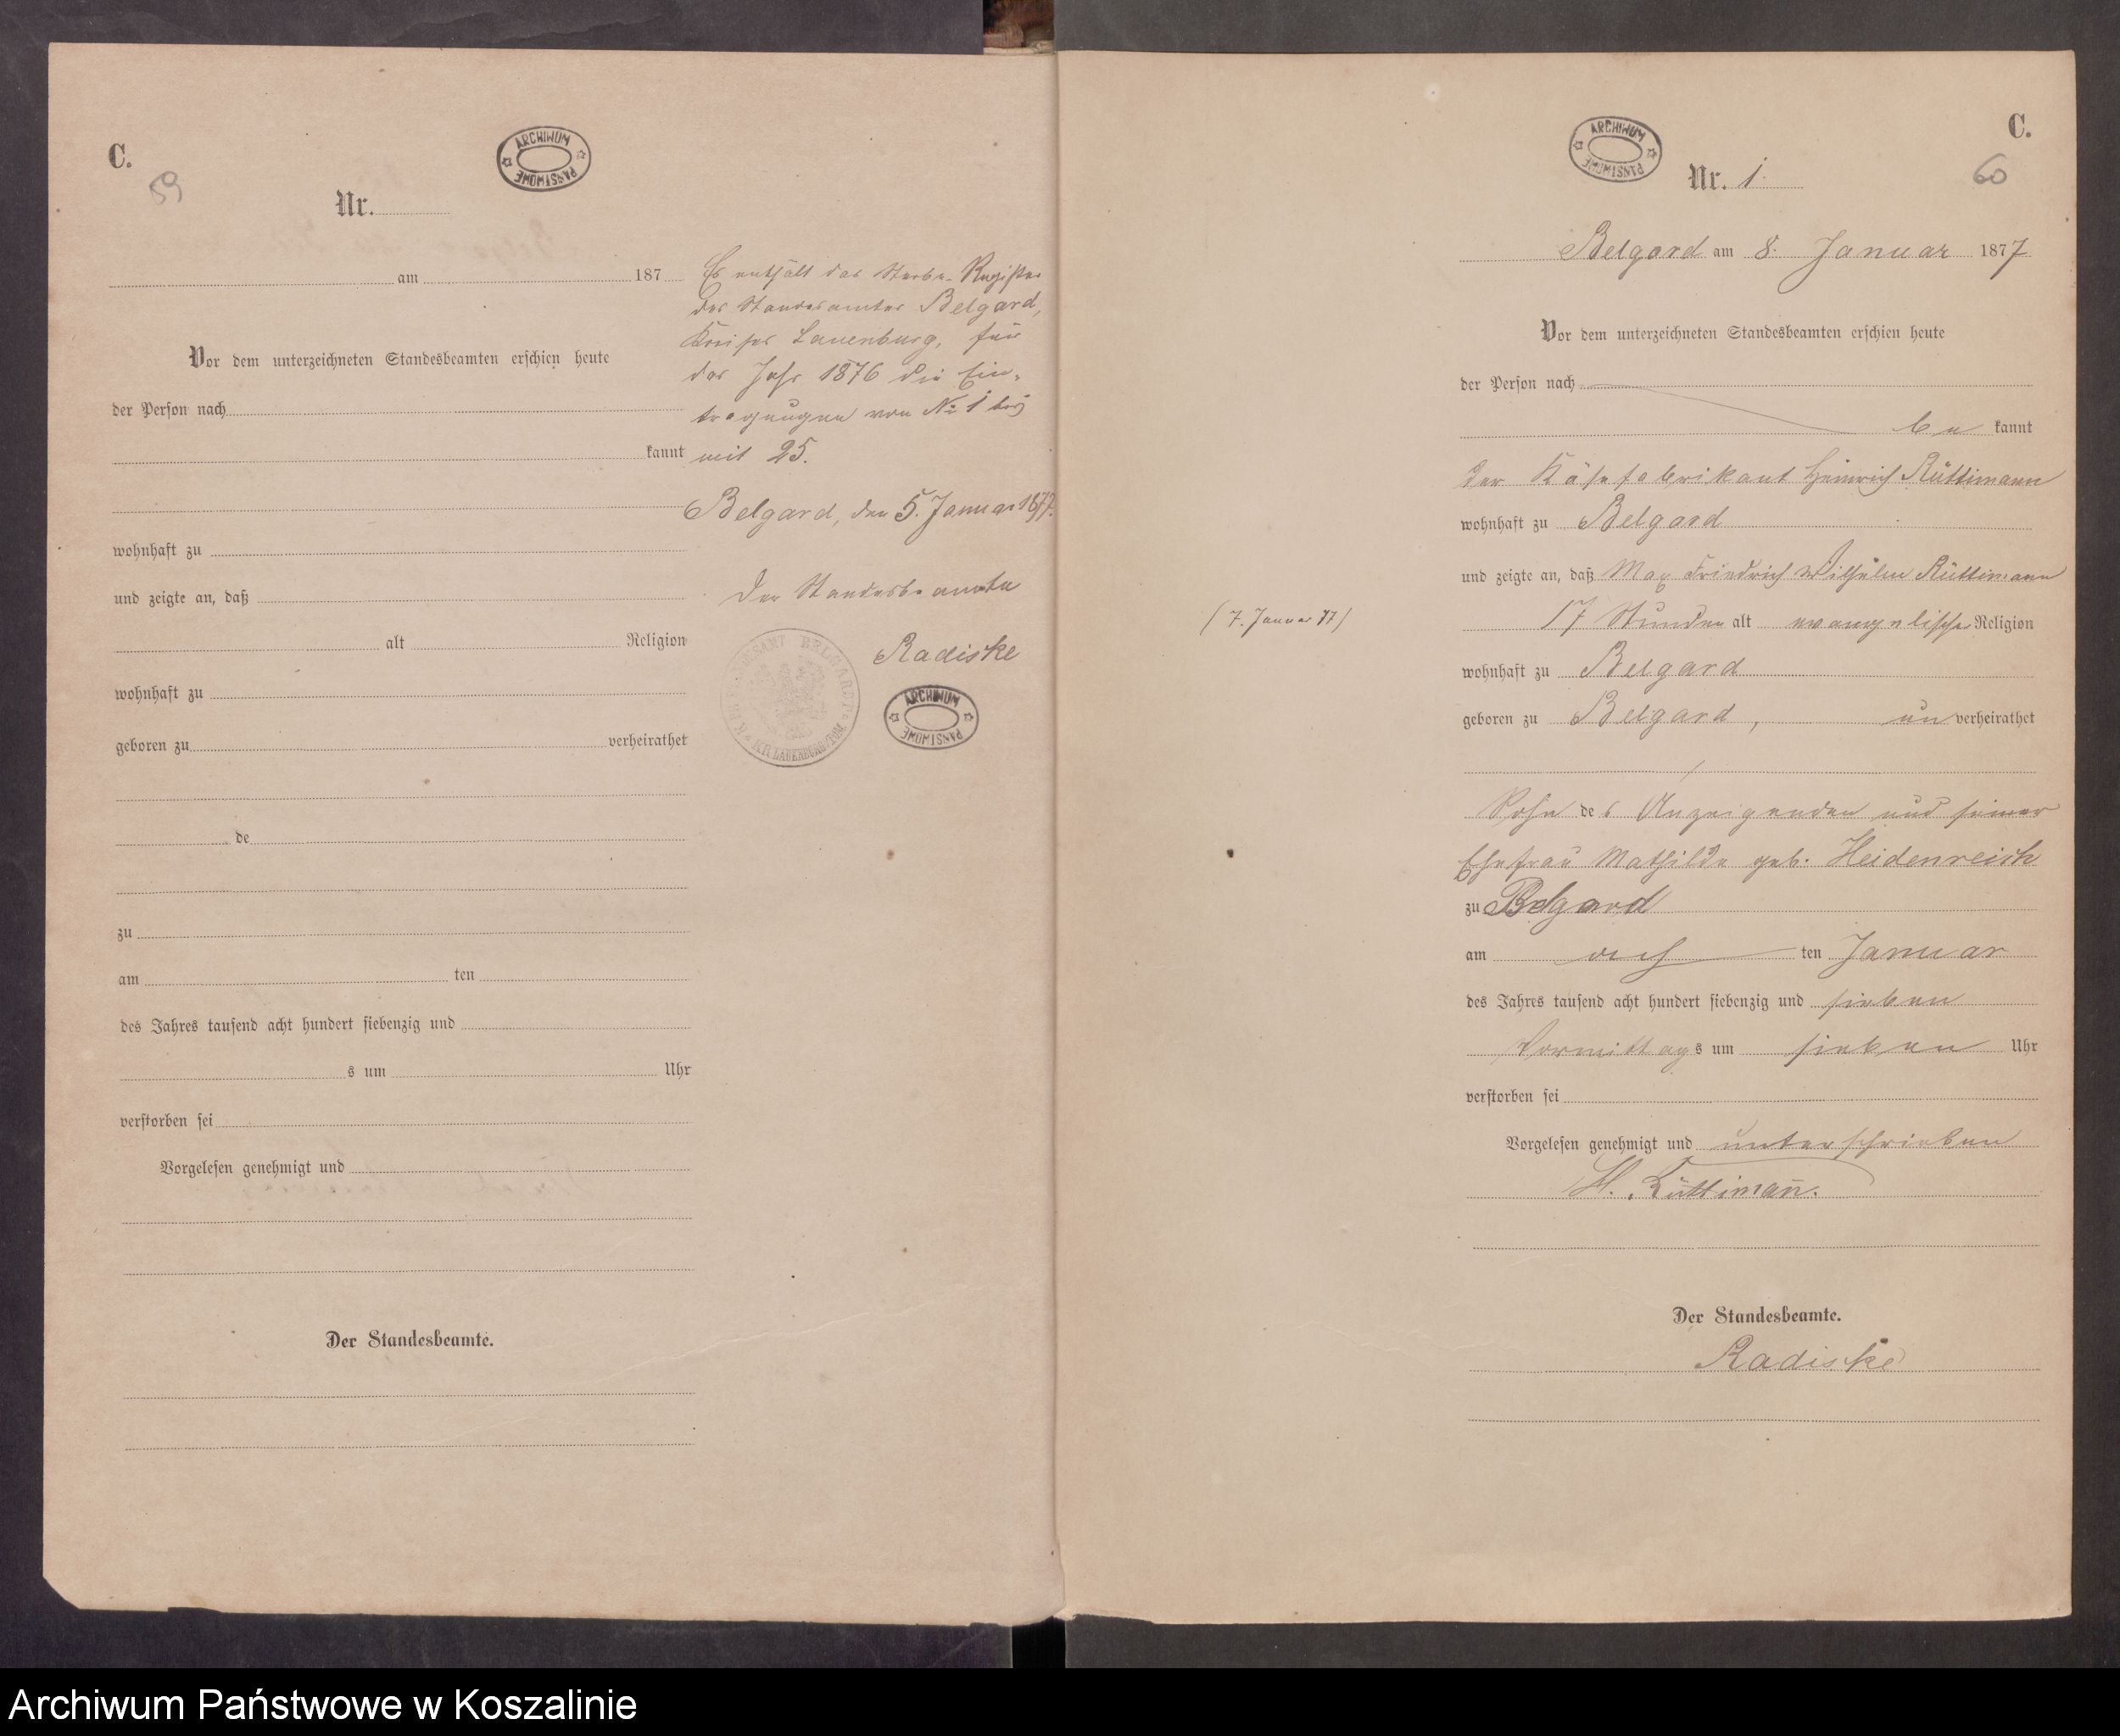 C.
59
ARCHIWUM PAŃSTWOWE
Nr.
am 187
Vor dem unterzeichneten Standesbeamten erschien heute
der Person nach
kannt
wohnhaft zu
und zeigte an, daß
alt Religion
wohnhaft zu
geboren zu verheirathet
de
zu
am ten
des Jahres tausend acht hundert siebenzig und
s um Uhr
verstorben sei
Vorgelesen genehmigt und
Der Standesbeamte.
Es enthält das Sterbe-Register
des Standesamtes Belgard,
Kreises Lauenburg, für
das Jahr 1876 die Ein-
tragungen von No 1 bis
mit 25.
Belgard, den 5. Januar 1877.
Der Standesbeamte
Radiske
BELGARD KR. LAUENBURG/POM.
ARCHIWUM PAŃSTWOWE
C.
60
ARCHIWUM PAŃSTWOWE
Nr. 1.
Belgard am 8. Januar 1877
Vor dem unterzeichneten Standesbeamten erschien heute
der Person nach
be kannt
der Käsefabrikant Heinrich Rüttimann
wohnhaft zu Belgard
und zeigte an, daß Max Friedrich Wilhelm Rüttimann
(7. Januar 77)
17 Stunden alt evangelischer Religion
wohnhaft zu Belgard
geboren zu Belgard, un verheirathet
Sohn des Anzeigenden und seiner
Ehefrau Mathilde geb. Heidenreich
zu Belgard
am ach ten Januar
des Jahres tausend acht hundert siebenzig und sieben
Vormittags um sieben Uhr
verstorben sei
Vorgelesen genehmigt und unterschrieben
H. Rüttimann.
Der Standesbeamte.
Radiske
Archiwum Państwowe w Koszalinie